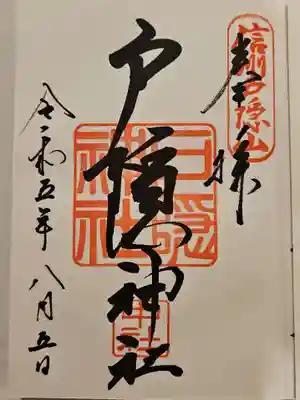 信州戸隠山
奉拝
戸隠神社
戸隠神社
中社
令和五年 八月五日